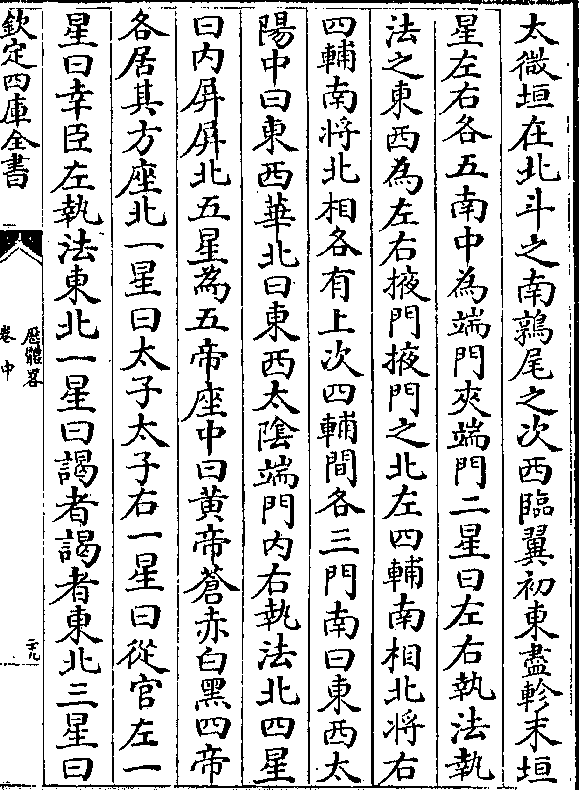 太微垣在北斗之南鶉尾之次西臨翼初東盡軫末垣
星左右各五南中為端門夾端門二星曰左右執法執
法之東西為左右掖門掖門之北左四輔南相北將右
四輔南將北相各有上次四輔間各三門南曰東西太
陽中曰東西華北曰東西太陰端門内右執法北四星
曰内屏屏北五星為五帝座中曰黄帝蒼赤白黑四帝
各居其方座北一星曰太子太子右一星曰從官左一
星曰幸臣左執法東北一星曰謁者謁者東北三星曰
欽定四庫全書
歴體畧
卷中
二十九